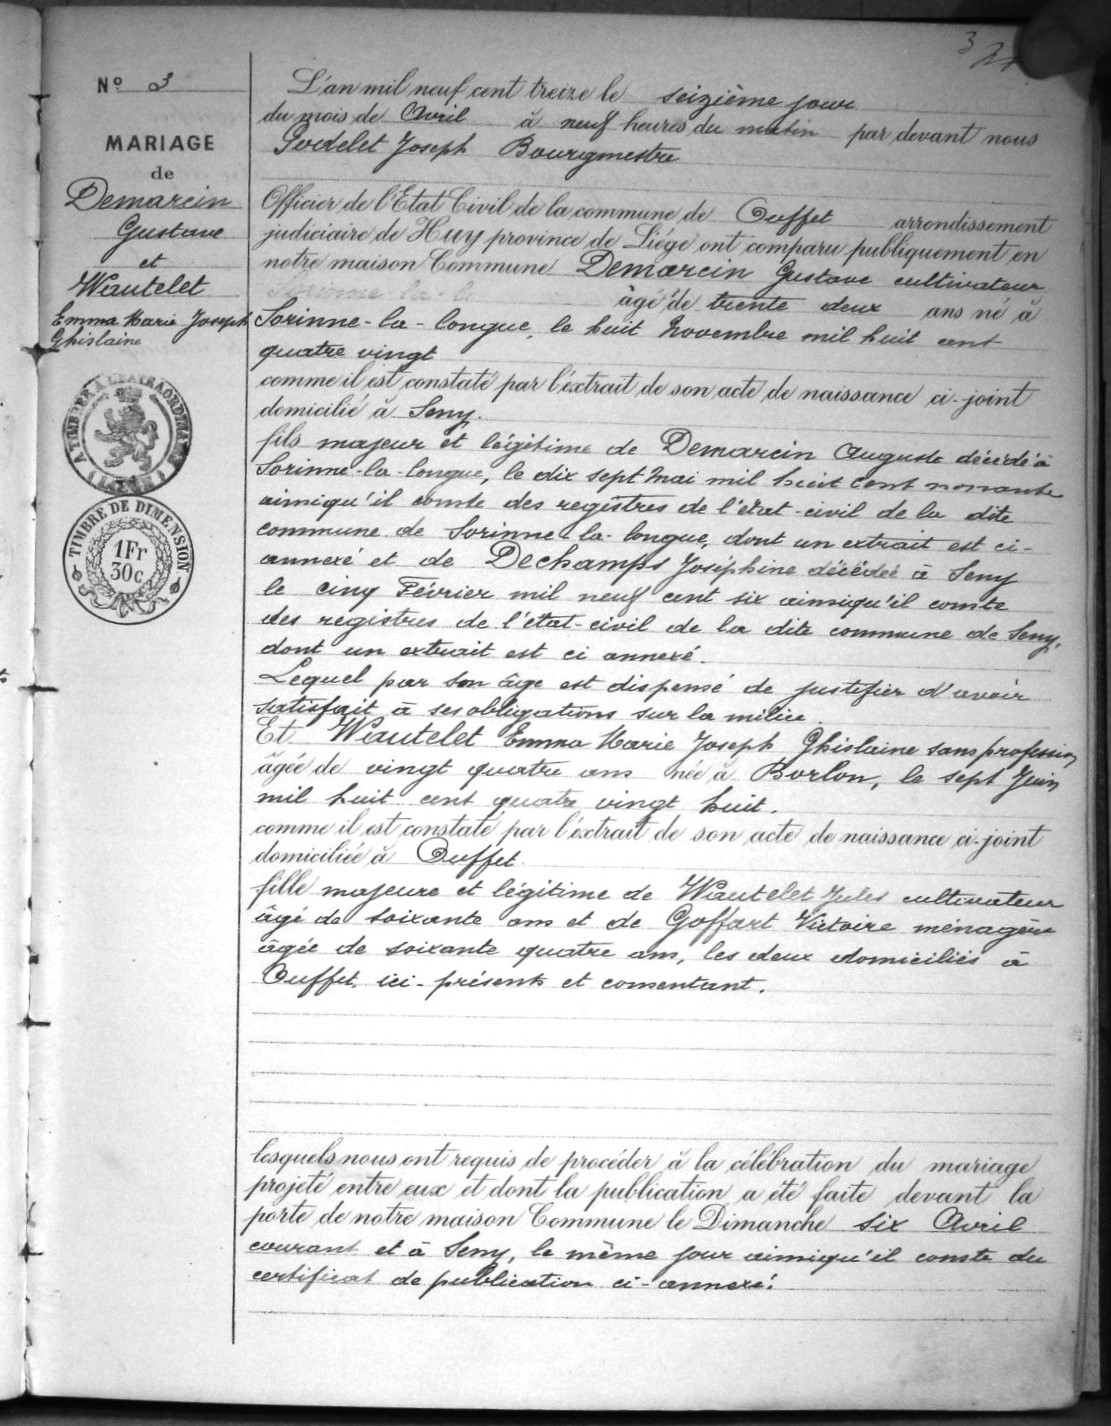 3
Nº 3
MARIAGE
de
Demarcin
Gustave
et
Wautelet
Emma Marie Joseph
Ghislaine
A TIMBRER A L'EXTRAORDINAIRE
TIMBRE DE DIMENSION
1Fr
30c
L'an mil neuf cent treize le seizième jour
du mois de Avril à neuf heures du matin par devant nous
Joseph Bourgmestre
Officier de l'Etat Civil de la commune de Ouffet arrondissement
judiciaire de Huy province de Liége ont comparu publiquement en
notre maison Commune Demarcin Gustave cultivateur
âgé de trente deux ans né à
Sorinne-la-longue, le huit Novembre mil huit cent
quatre vingt
comme il est constaté par l'extrait de son acte de naissance ci-joint
domicilié à Seny.
fils majeur et légitime de Demarcin Auguste décédé à
Sorinne-la-longue, le dix sept Mai mil huit cent nonante
ainsiqu'il conste des registres de l'état-civil de la dite
commune de Sorinne-la-longue, dont un extrait est ci-
annexé et de Dechamps Joséphine décédée à Seny
le cinq Février mil neuf cent six ainsiqu'il conste
des registres de l'état-civil de la dite commune de Seny,
dont un extrait est ci annexé.
Lequel par son âge est dispensé de justifier d'avoir
satisfait à ses obligations sur la milice.
Et Wautelet Emma Marie Joseph Ghislaine sans profession
âgée de vingt quatre ans née à Borlon, le sept Juin
mil huit cent quatre vingt huit.
comme il est constaté par l'extrait de son acte de naissance ci-joint
domiciliée à Ouffet
fille majeure et légitime de Wautelet Jules cultivateur
âgé de soixante ans et de Goffart Victoire ménagère
âgée de soixante quatre ans, les deux domiciliés à
Ouffet, ici-présents et consentant.
lesquels nous ont requis de procéder à la célébration du mariage
projeté entre eux et dont la publication a été faite devant la
porte de notre maison Commune le Dimanche six Avril
courant et à Seny, le même jour ainsiqu'il conste du
certificat de publication ci-annexé.